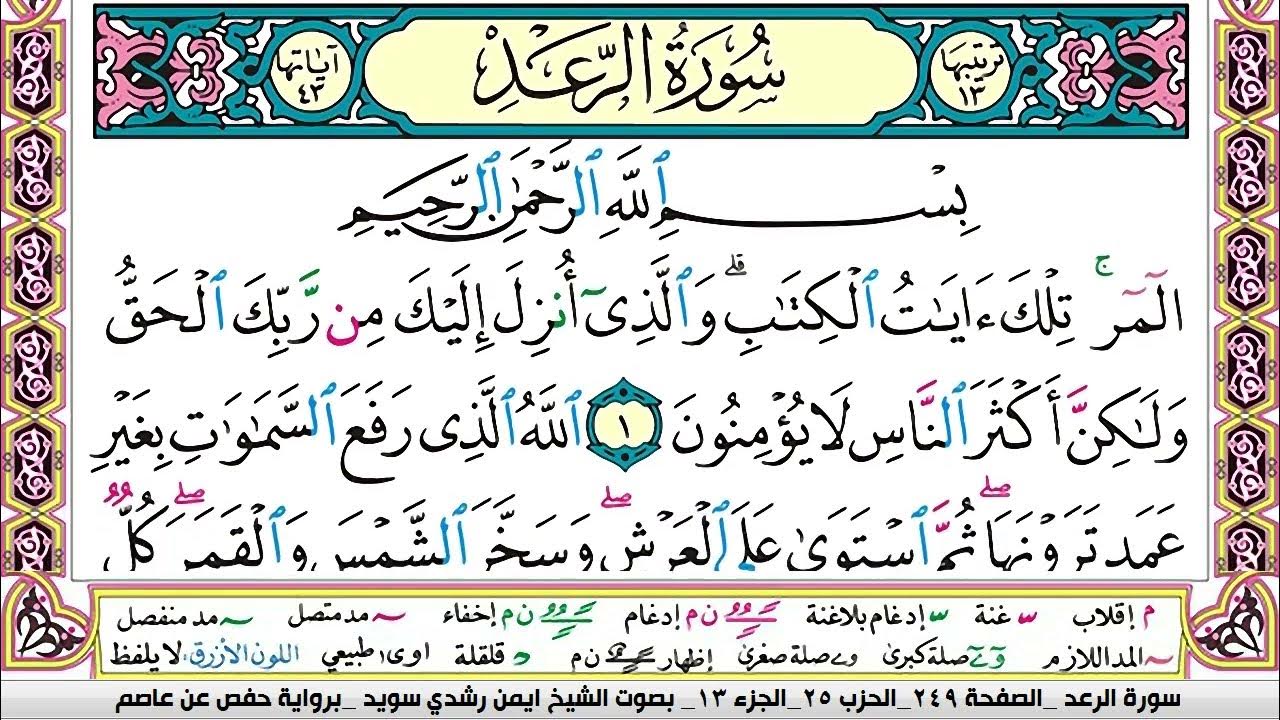 ترتيبها ١٣
سُورَةُ الرَّعْدِ
آياتها ٤٣
بِسْمِ ٱللَّهِ ٱلرَّحْمَٰنِ ٱلرَّحِيمِ
الٓمٓرۚ تِلْكَ ءَايَٰتُ ٱلْكِتَٰبِۗ وَٱلَّذِىٓ أُنزِلَ إِلَيْكَ مِن رَّبِّكَ ٱلْحَقُّ
وَلَٰكِنَّ أَكْثَرَ ٱلنَّاسِ لَا يُؤْمِنُونَ ١ ٱللَّهُ ٱلَّذِى رَفَعَ ٱلسَّمَٰوَٰتِ بِغَيْرِ
عَمَدٍ تَرَوْنَهَاۖ ثُمَّ ٱسْتَوَىٰ عَلَى ٱلْعَرْشِۖ وَسَخَّرَ ٱلشَّمْسَ وَٱلْقَمَرَۖ كُلٌّ
م إقلاب غنة إدغام بلاغنة ن م إدغام ن م إخفاء مد متصل مد منفصل
المد اللازم صلة كبرى صلة صغرى إظهار ن م قلقلة اوى طبيعي اللون الأزرق: لا يلفظ
سورة الرعد _الصفحة ٢٤٩_الحزب ٢٥_الجزء ١٣_ بصوت الشيخ ايمن رشدي سويد _برواية حفص عن عاصم